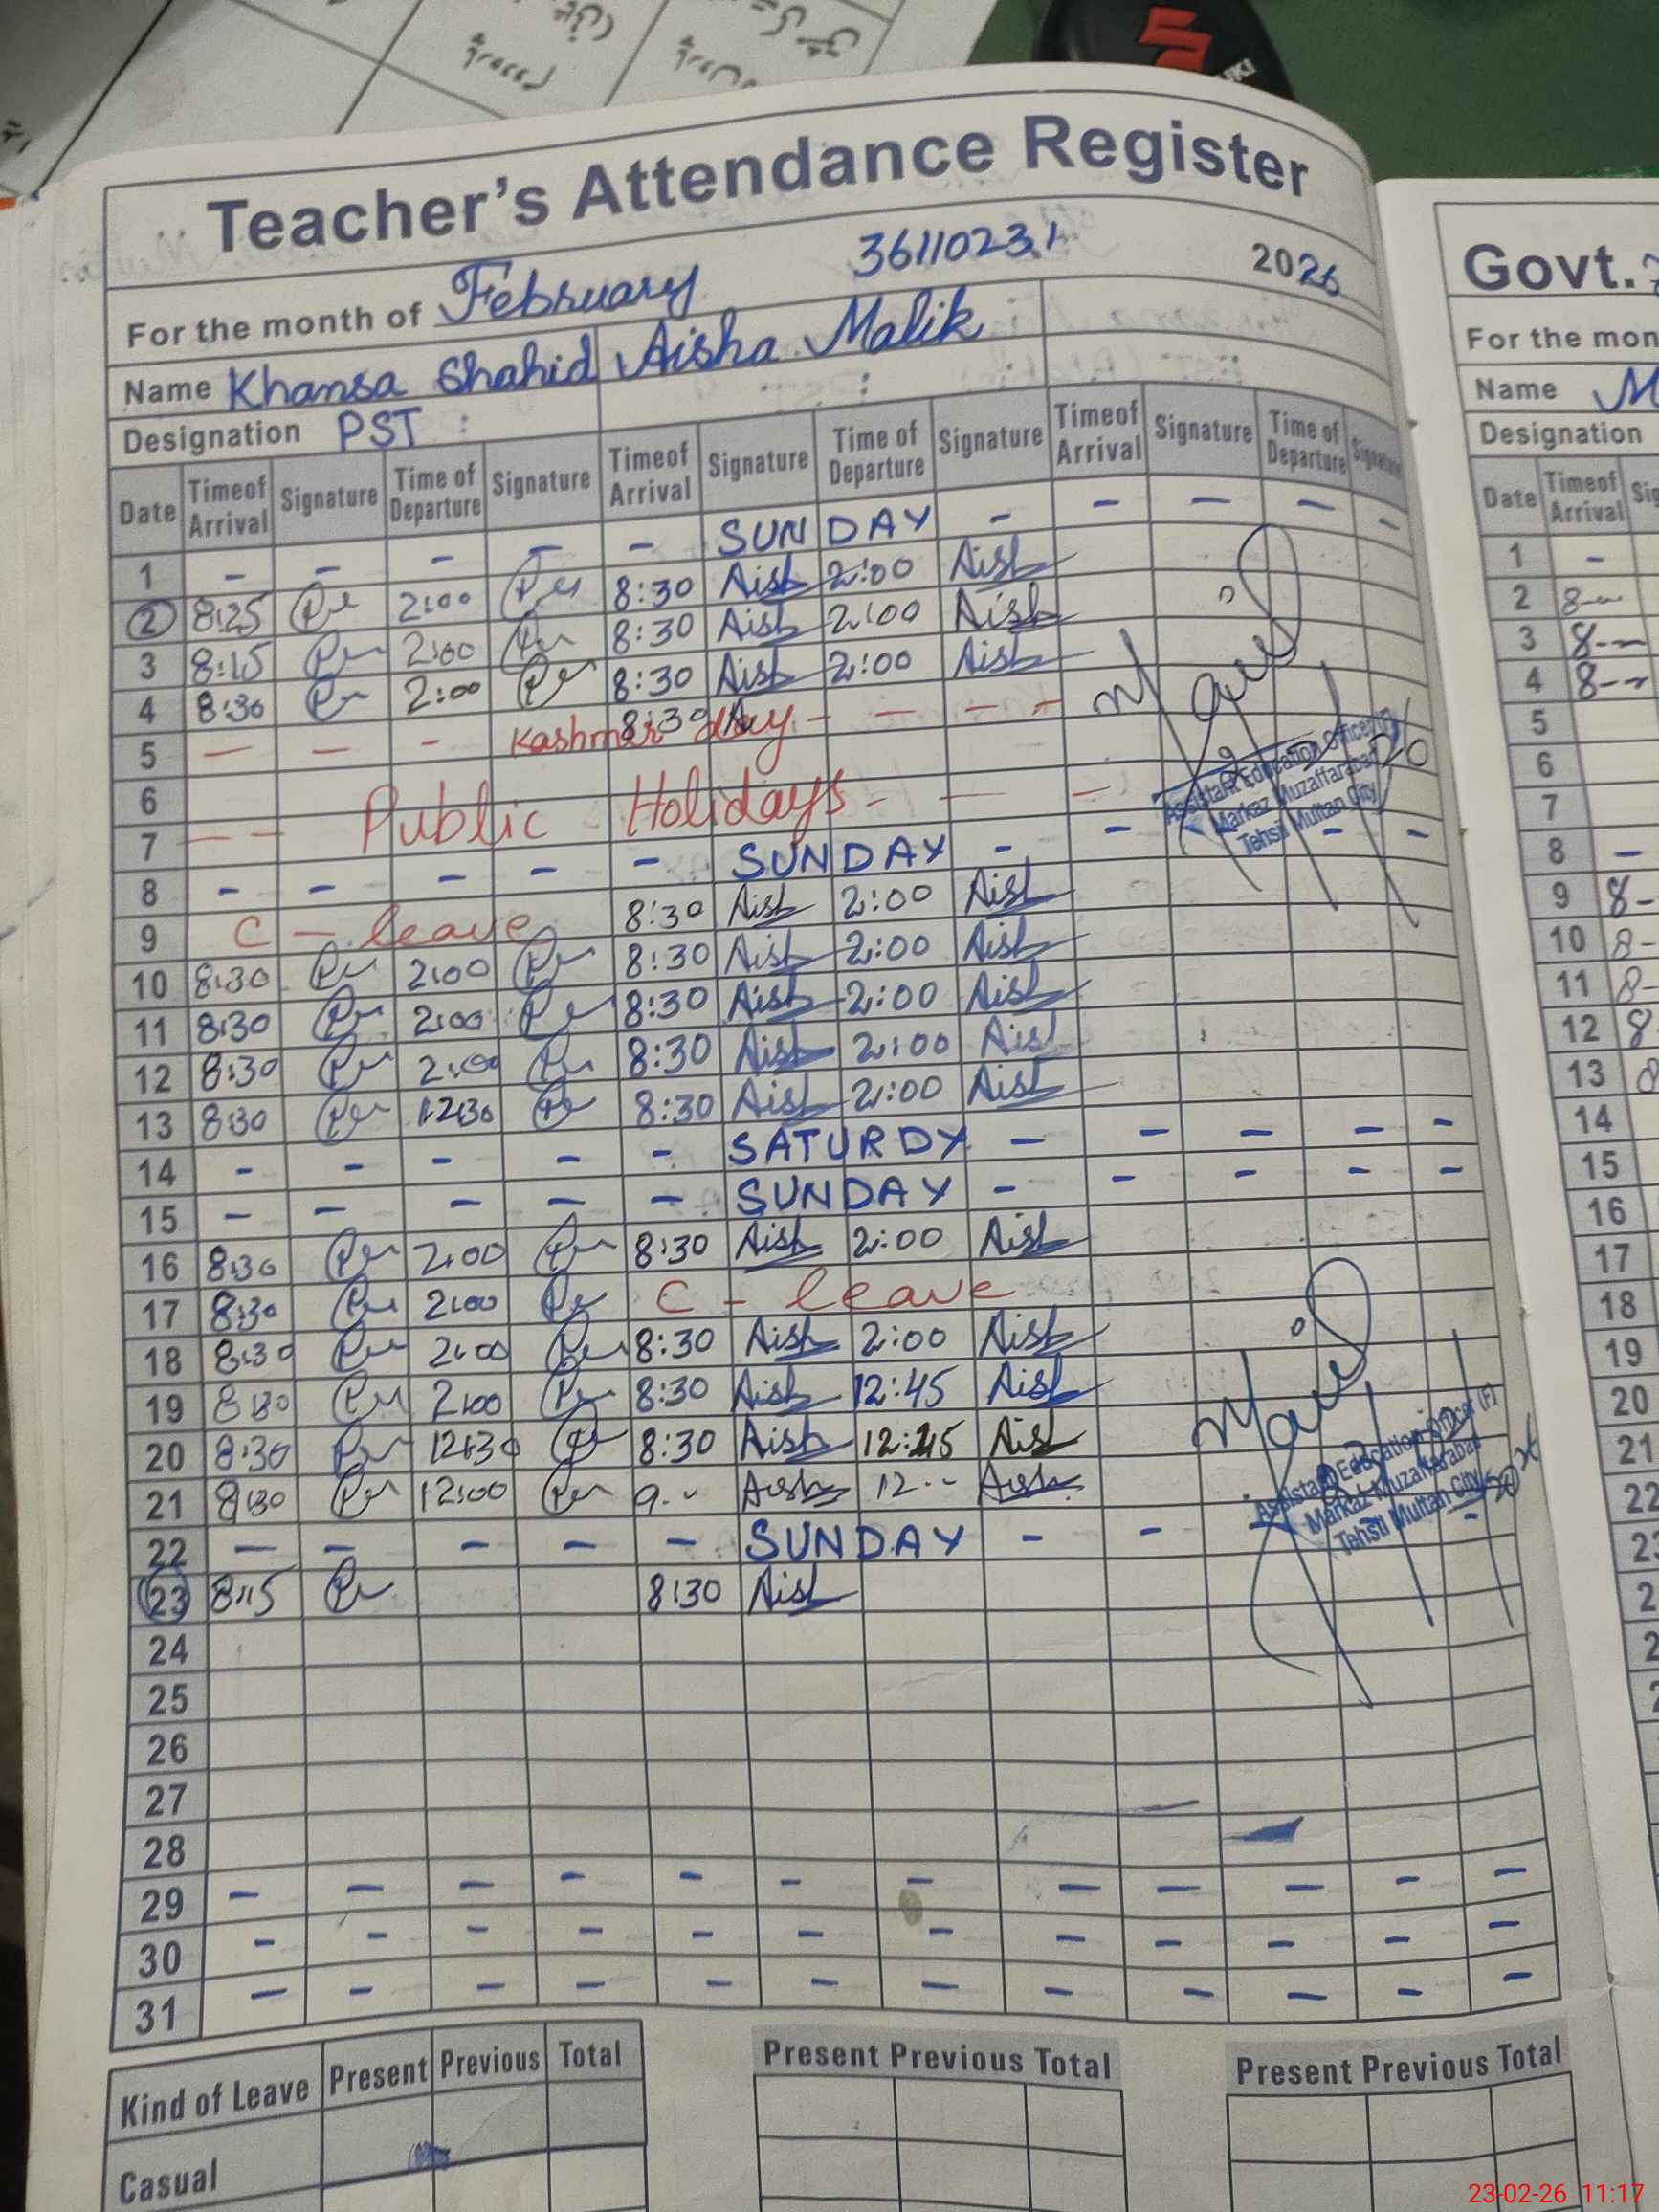 Teacher's Attendance Register
For the month of February 3611023.1 2026
Name Khansa Shahid Aisha Malik
Designation PST :
Date Timeof Arrival Signature Time of Departure Signature Timeof Arrival Signature Time of Departure Signature Timeof Arrival Signature Time of Departure Signature
1 - - - - - SUNDAY - - - - -
2 8:25 2:00 8:30 Aish 2:00 Aish
3 8:15 2:00 8:30 Aish 2:00 Aish
4 8:30 2:00 8:30 Aish 2:00 Aish
5 - - - Kashmir day - - - -
8:30
6
7 - - Public Holidays - - -
8 - - - - - SUNDAY - - - -
9 C - leave 8:30 Aish 2:00 Aish
10 8:30 2:00 8:30 Aish 2:00 Aish
11 8:30 2:00 8:30 Aish 2:00 Aish
12 8:30 2:00 8:30 Aish 2:00 Aish
13 8:30 12:30 8:30 Aish 2:00 Aish
14 - - - - - SATURDY - - - - -
15 - - - - - SUNDAY - - - - -
16 8:30 2:00 8:30 Aish 2:00 Aish
17 8:30 2:00 C - leave
18 8:30 2:00 8:30 Aish 2:00 Aish
19 8:30 2:00 8:30 Aish 12:45 Aish
20 8:30 12:30 8:30 Aish Aish
21 8:30 12:00 9.. Aish 12.. Aish
22 - - - - - SUNDAY - - - -
23 8:15 8:30 Aish
24
25
26
27
28
29 - - - - - - - - - - - -
30 - - - - - - - - - - - -
31 - - - - - - - - - - - -
Assistant Education Officer (F)
Markaz Muzaffarabad
Tehsil Multan City
Assistant Education Officer (F)
Markaz Muzaffarabad
Tehsil Multan City
Kind of Leave Present Previous Total Present Previous Total Present Previous Total
Casual
Govt.
For the mon
Name M
Designation
Date Timeof Arrival Sig
1 -
2 8--
3 8--
4 8--
5
6
7
8 -
9 8-
10 8-
11 8-
12 8
13 8
14
15
16
17
18
19
20
21
22
23-02-26 11:17